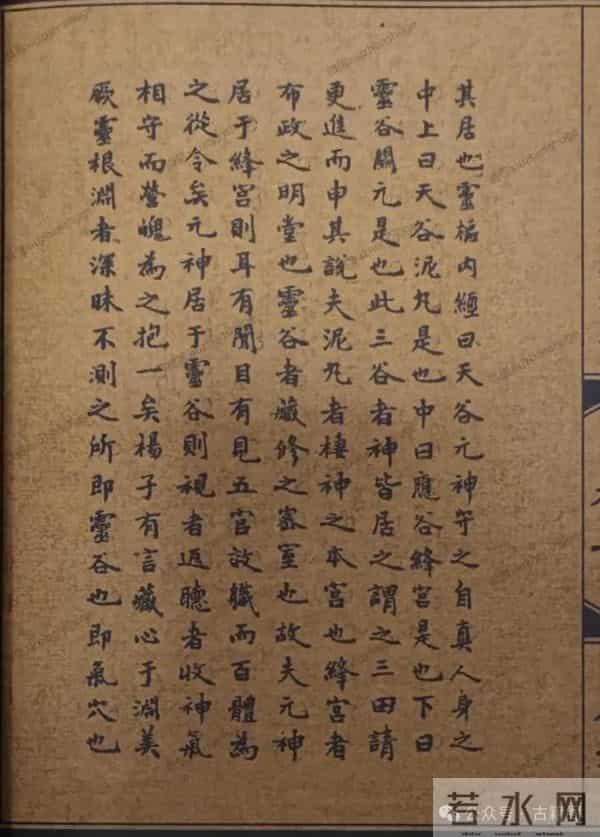 其居也靈樞內經曰天谷元神守之自真人身之
中上曰天谷泥丸是也中曰應谷絳宮是也下曰
靈谷關元是也此三谷者神皆居之謂之三田請
更進而申其說夫泥丸者棲神之本宮也絳宮者
布政之明堂也靈谷者藏修之密室也故夫元神
居于絳宮則耳有聞目有見五官效職而百體為
之從令矣元神居于靈谷則視者返聽者收神氣
相守而營魄為之抱一矣楊子有言藏心于淵美
厥靈根淵者深昧不測之所即靈谷也即氣穴也
若水网
公众号